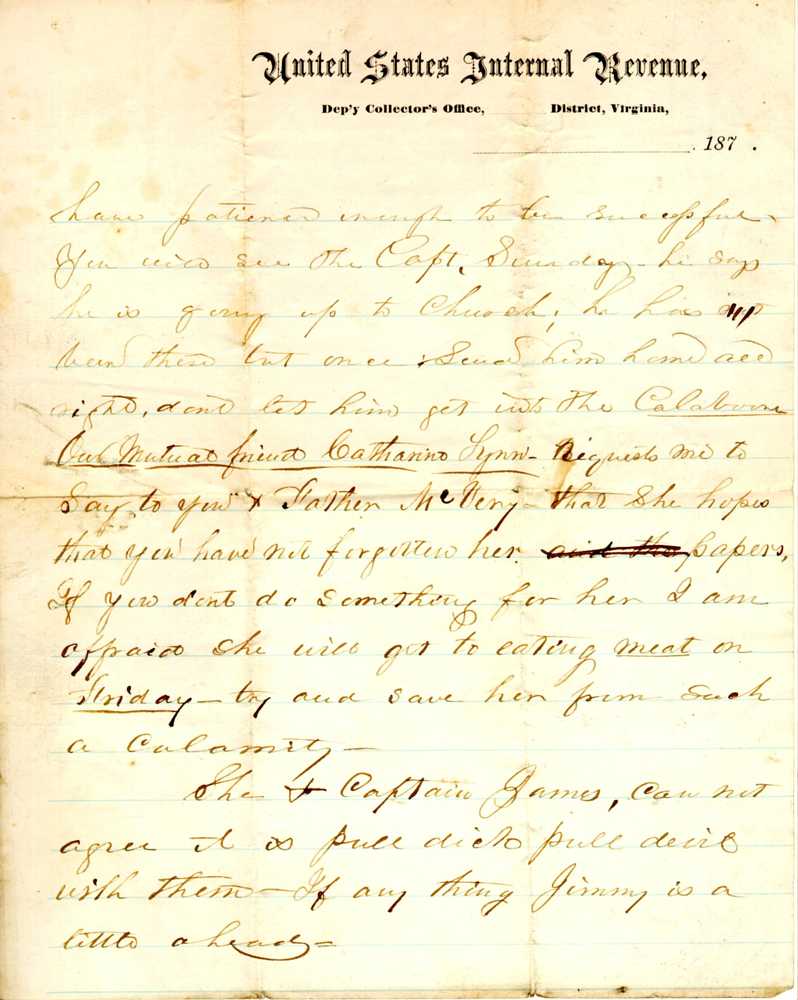 United States Internal Revenue,
Dep'y Collector's Office, District, Virginia,
187 .
have patience enough to be successful.
You will see the Capt, Sunday – he says
he is going up to Church; he has not
been there but once. Send him home all
right, dont let him get into the Calaboose
Our Mutual friend Catharine Lynn – Requests me to
Say to you & Father McVery – that She hopes
that you have not forgotten her and the papers,
If you dont do something for her I am
affraid She will get to eating meat on
Friday – try and save her from Such
a Calamity –
She & Captain James, can not
agree it is pull dick pull devil
with them – If any thing Jimmy is a
little ahead –